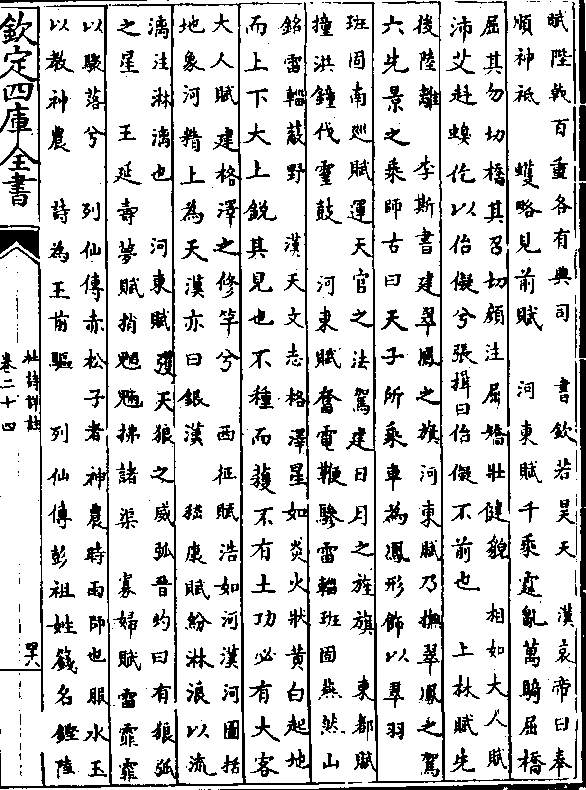 賦陛戟百重各有典司　書欽若昊天　漢哀帝曰奉
順神祗　蠖略見前賦　河東賦千乘霆亂萬騎屈橋
屈其勿切橋其召切顔注屈橋壯健貌　相如大人賦
沛艾赳螑仡以佁儗兮張揖曰佁儗不前也　上林賦先
後陸離　李斯書建翠鳳之旗河東賦乃撫翠鳳之駕
六先景之乘師古曰天子所乘車為鳳形飾以翠羽
班固南巡賦運天官之法駕建日月之旌旗　東都賦
撞洪鐘伐靈鼓　河東賦奮電鞭驂雷輜班固燕然山
銘雷輜蔽野　漢天文志格澤星如炎火狀黄白起地
而上下大上鋭其見也不種而穫不有土功必有大客
大人賦建格澤之修竿兮　西征賦浩如河漢河圖括
地象河精上為天漢亦曰銀漢　嵇康賦紛淋浪以流
漓注淋漓也　河東賦彏天狼之威弧晉灼曰有狼弧
之星　王延壽夢賦捎魍魎拂諸渠　寡婦賦霏霏
以驟落兮　列仙傳赤松子者神農時雨師也服水玉
以教神農　詩為王前驅　列仙傳彭祖姓籛名鏗陸
欽定四庫全書
杜詩詳註
卷二十四